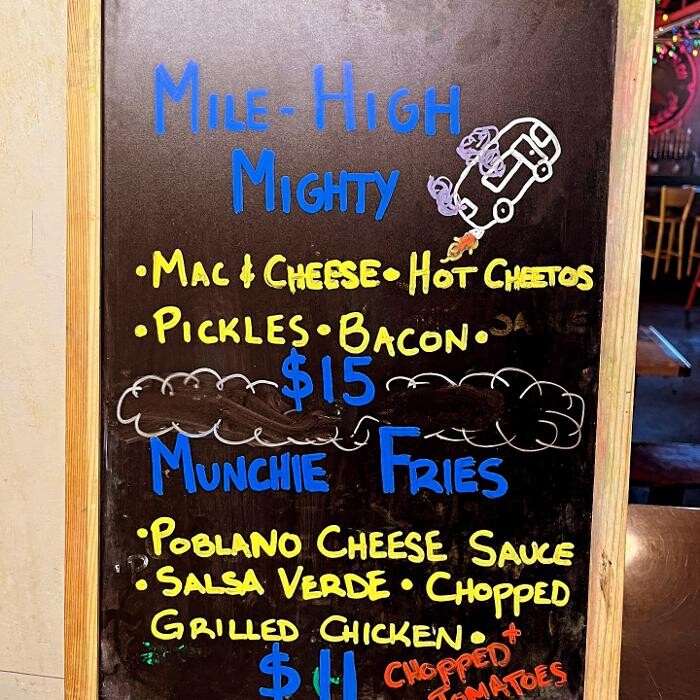 MILE-HIGH
MIGHTY
•MAC & CHEESE• HOT CHEETOS
•PICKLES•BACON•
$15
MUNCHIE FRIES
•POBLANO CHEESE SAUCE
•SALSA VERDE • CHOPPED
GRILLED CHICKEN•
$11 CHOPPED +
TOMATOES